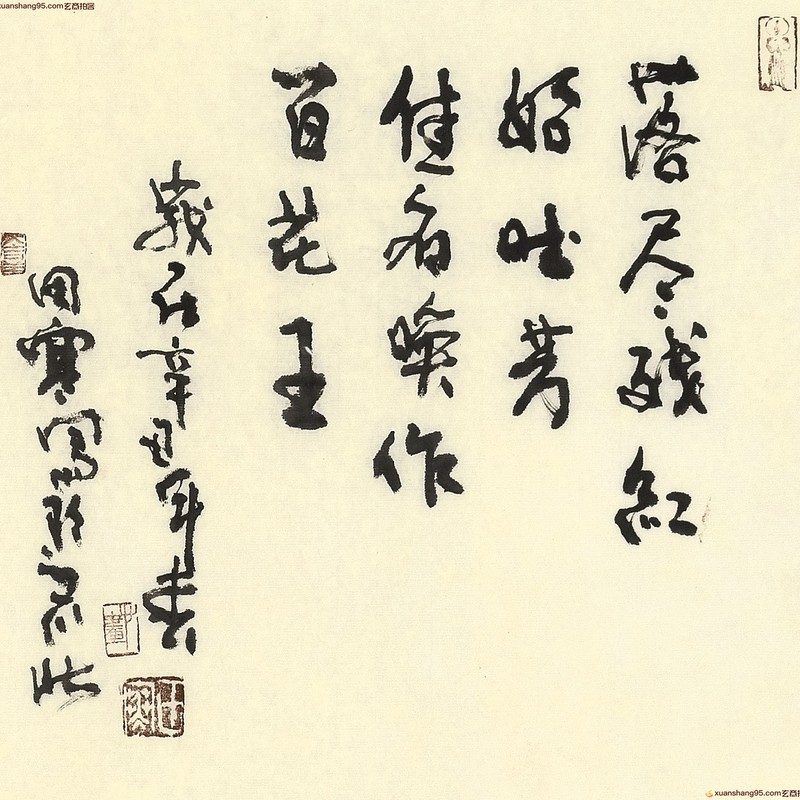 xuanshang95.com玄商拍客
落尽残红
始吐芳
佳名唤作
百花王
岁在辛丑年春
寒写於
xuanshang95.com玄商拍